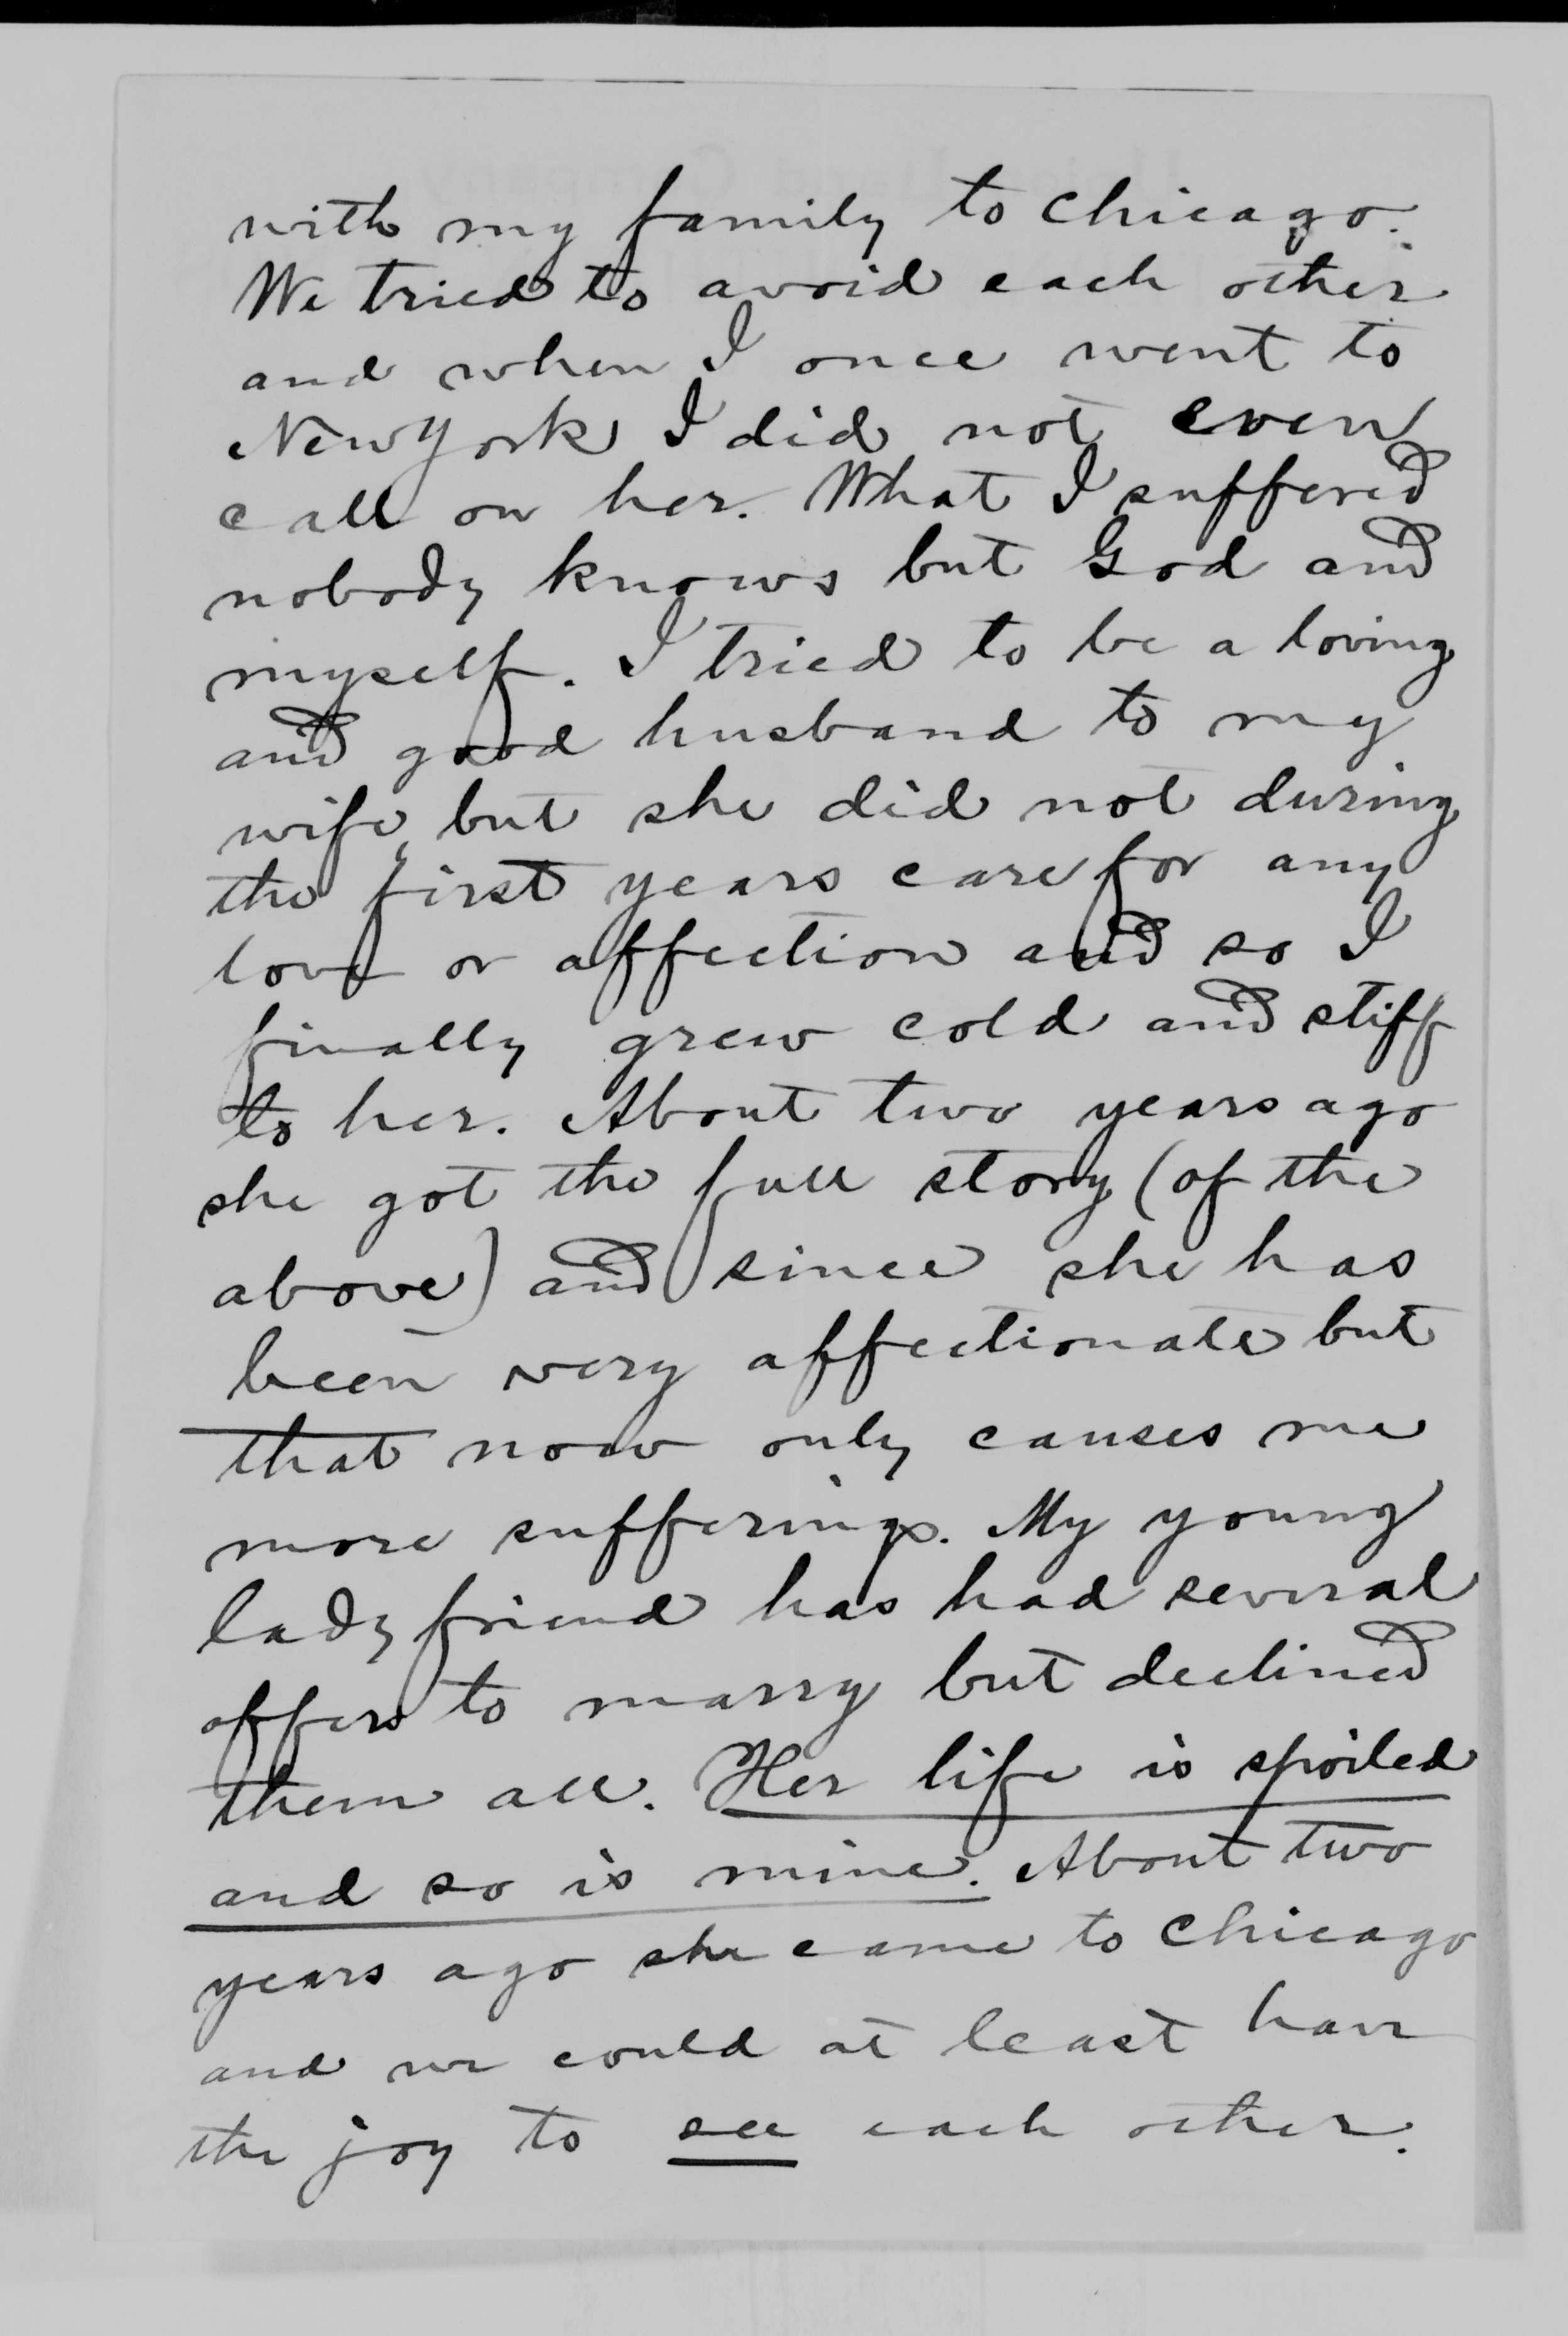 with my family to Chicago.
We tried to avoid each other
and when I once went to
New York I did not even
call on her. What I suffered
nobody knows but God and
myself. I tried to be a loving
and good husband to my
wife, but she did not during
the first years care for any
love or affection and so I
finally grew cold and stiff
to her. About two years ago
she got the full story (of the
above) and since she has
been very affectionate but
that now only causes me
more sufferings. My young
lady friend has had several
offers to marry but declined
them all. Her life is spoiled
and so is mine. About two
years ago she came to Chicago
and we could at least have
the joy to see each other.